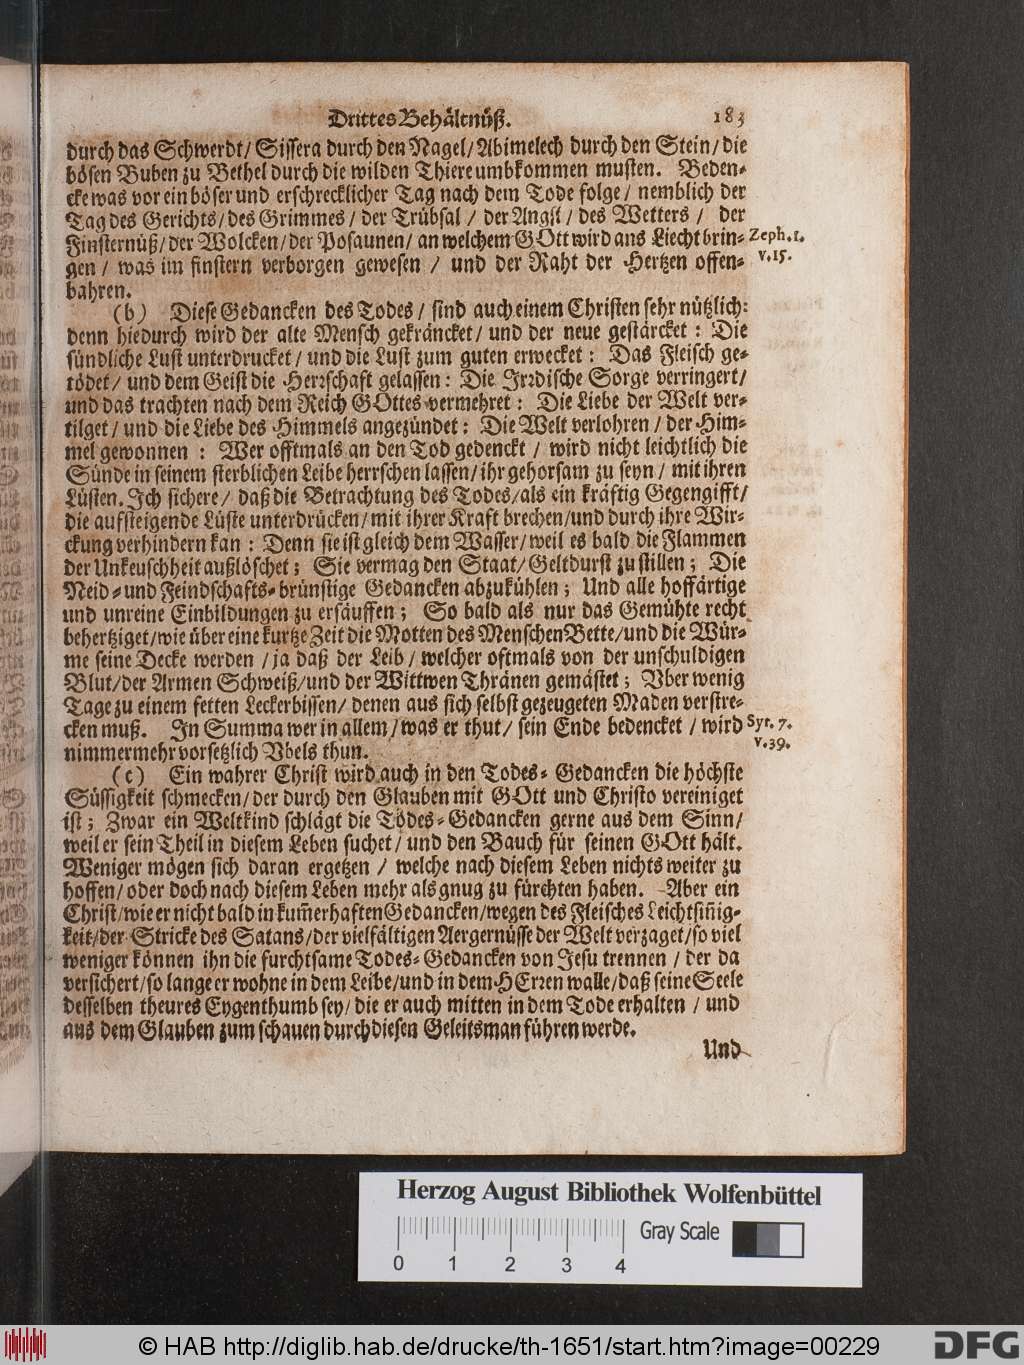 Drittes Behältnüß. 183
durch das Schwerdt/ Sissera durch den Nagel/ Abimelech durch den Stein/ die
bösen Buben zu Bethel durch die wilden Thiere umbkommen musten. Beden-
cke was vor ein böser und erschrecklicher Tag nach dem Tode folge/ nemblich der
Tag des Gerichts/ des Grimmes/ der Trübsal/ der Angst/ des Wetters/ der
Finsternüß/ der Wolcken/ der Posaunen/ an welchem GOtt wird ans Liecht brin- Zeph. 1.
gen/ was im finstern verborgen gewesen/ und der Raht der Hertzen offen- v. 15.
bahren.
(b) Diese Gedancken des Todes/ sind auch einem Christen sehr nützlich:
denn hiedurch wird der alte Mensch gekräncket/ und der neue gestärcket: Die
sündliche Lust unterdrucket/ und die Lust zum guten erwecket: Das Fleisch ge-
tödet/ und dem Geist die Herrschaft gelassen: Die Irrdische Sorge verringert/
und das trachten nach dem Reich GOttes vermehret: Die Liebe der Welt ver-
tilget/ und die Liebe des Himmels angezündet: Die Welt verlohren/ der Him-
mel gewonnen: Wer offtmals an den Tod gedenckt/ wird nicht leichtlich die
Sünde in seinem sterblichen Leibe herrschen lassen/ ihr gehorsam zu seyn/ mit ihren
Lüsten. Ich sichere/ daß die Betrachtung des Todes/ als ein kräftig Gegengifft/
die aufsteigende Lüste unterdrücken/ mit ihrer Kraft brechen/ und durch ihre Wir-
ckung verhindern kan: Denn sie ist gleich dem Wasser/ weil es bald die Flammen
der Unkeuschheit außlöschet; Sie vermag den Staat/ Geltdurst zu stillen; Die
Neid- und Feindschafts-brünstige Gedancken abzukühlen; Und alle hoffärtige
und unreine Einbildungen zu ersäuffen; So bald als nur das Gemühte recht
behertziget/ wie über eine kurtze Zeit die Motten des Menschen Bette/ und die Wür-
me seine Decke werden/ ja daß der Leib/ welcher oftmals von der unschuldigen
Blut/ der Armen Schweiß/ und der Wittwen Thränen gemästet; Uber wenig
Tage zu einem fetten Leckerbissen/ denen aus sich selbst gezeugeten Maden verstre-
cken muß. In Summa wer in allem/ was er thut/ sein Ende bedencket/ wird Syr. 7.
nimmermehr vorsetzlich Ubels thun. v. 39.
(c) Ein wahrer Christ wird auch in den Todes-Gedancken die höchste
Süssigkeit schmecken/ der durch den Glauben mit GOtt und Christo vereiniget
ist; Zwar ein Weltkind schlägt die Todes-Gedancken gerne aus dem Sinn/
weil er sein Theil in diesem Leben suchet/ und den Bauch für seinen GOtt hält.
Weniger mögen sich daran ergetzen/ welche nach diesem Leben nichts weiter zu
hoffen/ oder doch nach diesem Leben mehr als gnug zu fürchten haben. Aber ein
Christ/ wie er nicht bald in kum̄erhaften Gedancken/ wegen des Fleisches Leichtsin̄ig-
keit/ der Stricke des Satans/ der vielfältigen Aergernüsse der Welt verzaget/ so viel
weniger können ihn die furchtsame Todes-Gedancken von Jesu trennen/ der da
versichert/ so lange er wohne in dem Leibe/ und in dem HErren walle/ daß seine Seele
desselben theures Eygenthumb sey/ die er auch mitten in dem Tode erhalten/ und
aus dem Glauben zum schauen durch diesen Geleitsman führen werde.
Und
Herzog August Bibliothek Wolfenbüttel
Gray Scale
0 1 2 3 4
© HAB http://diglib.hab.de/drucke/th-1651/start.htm?image=00229
DFG